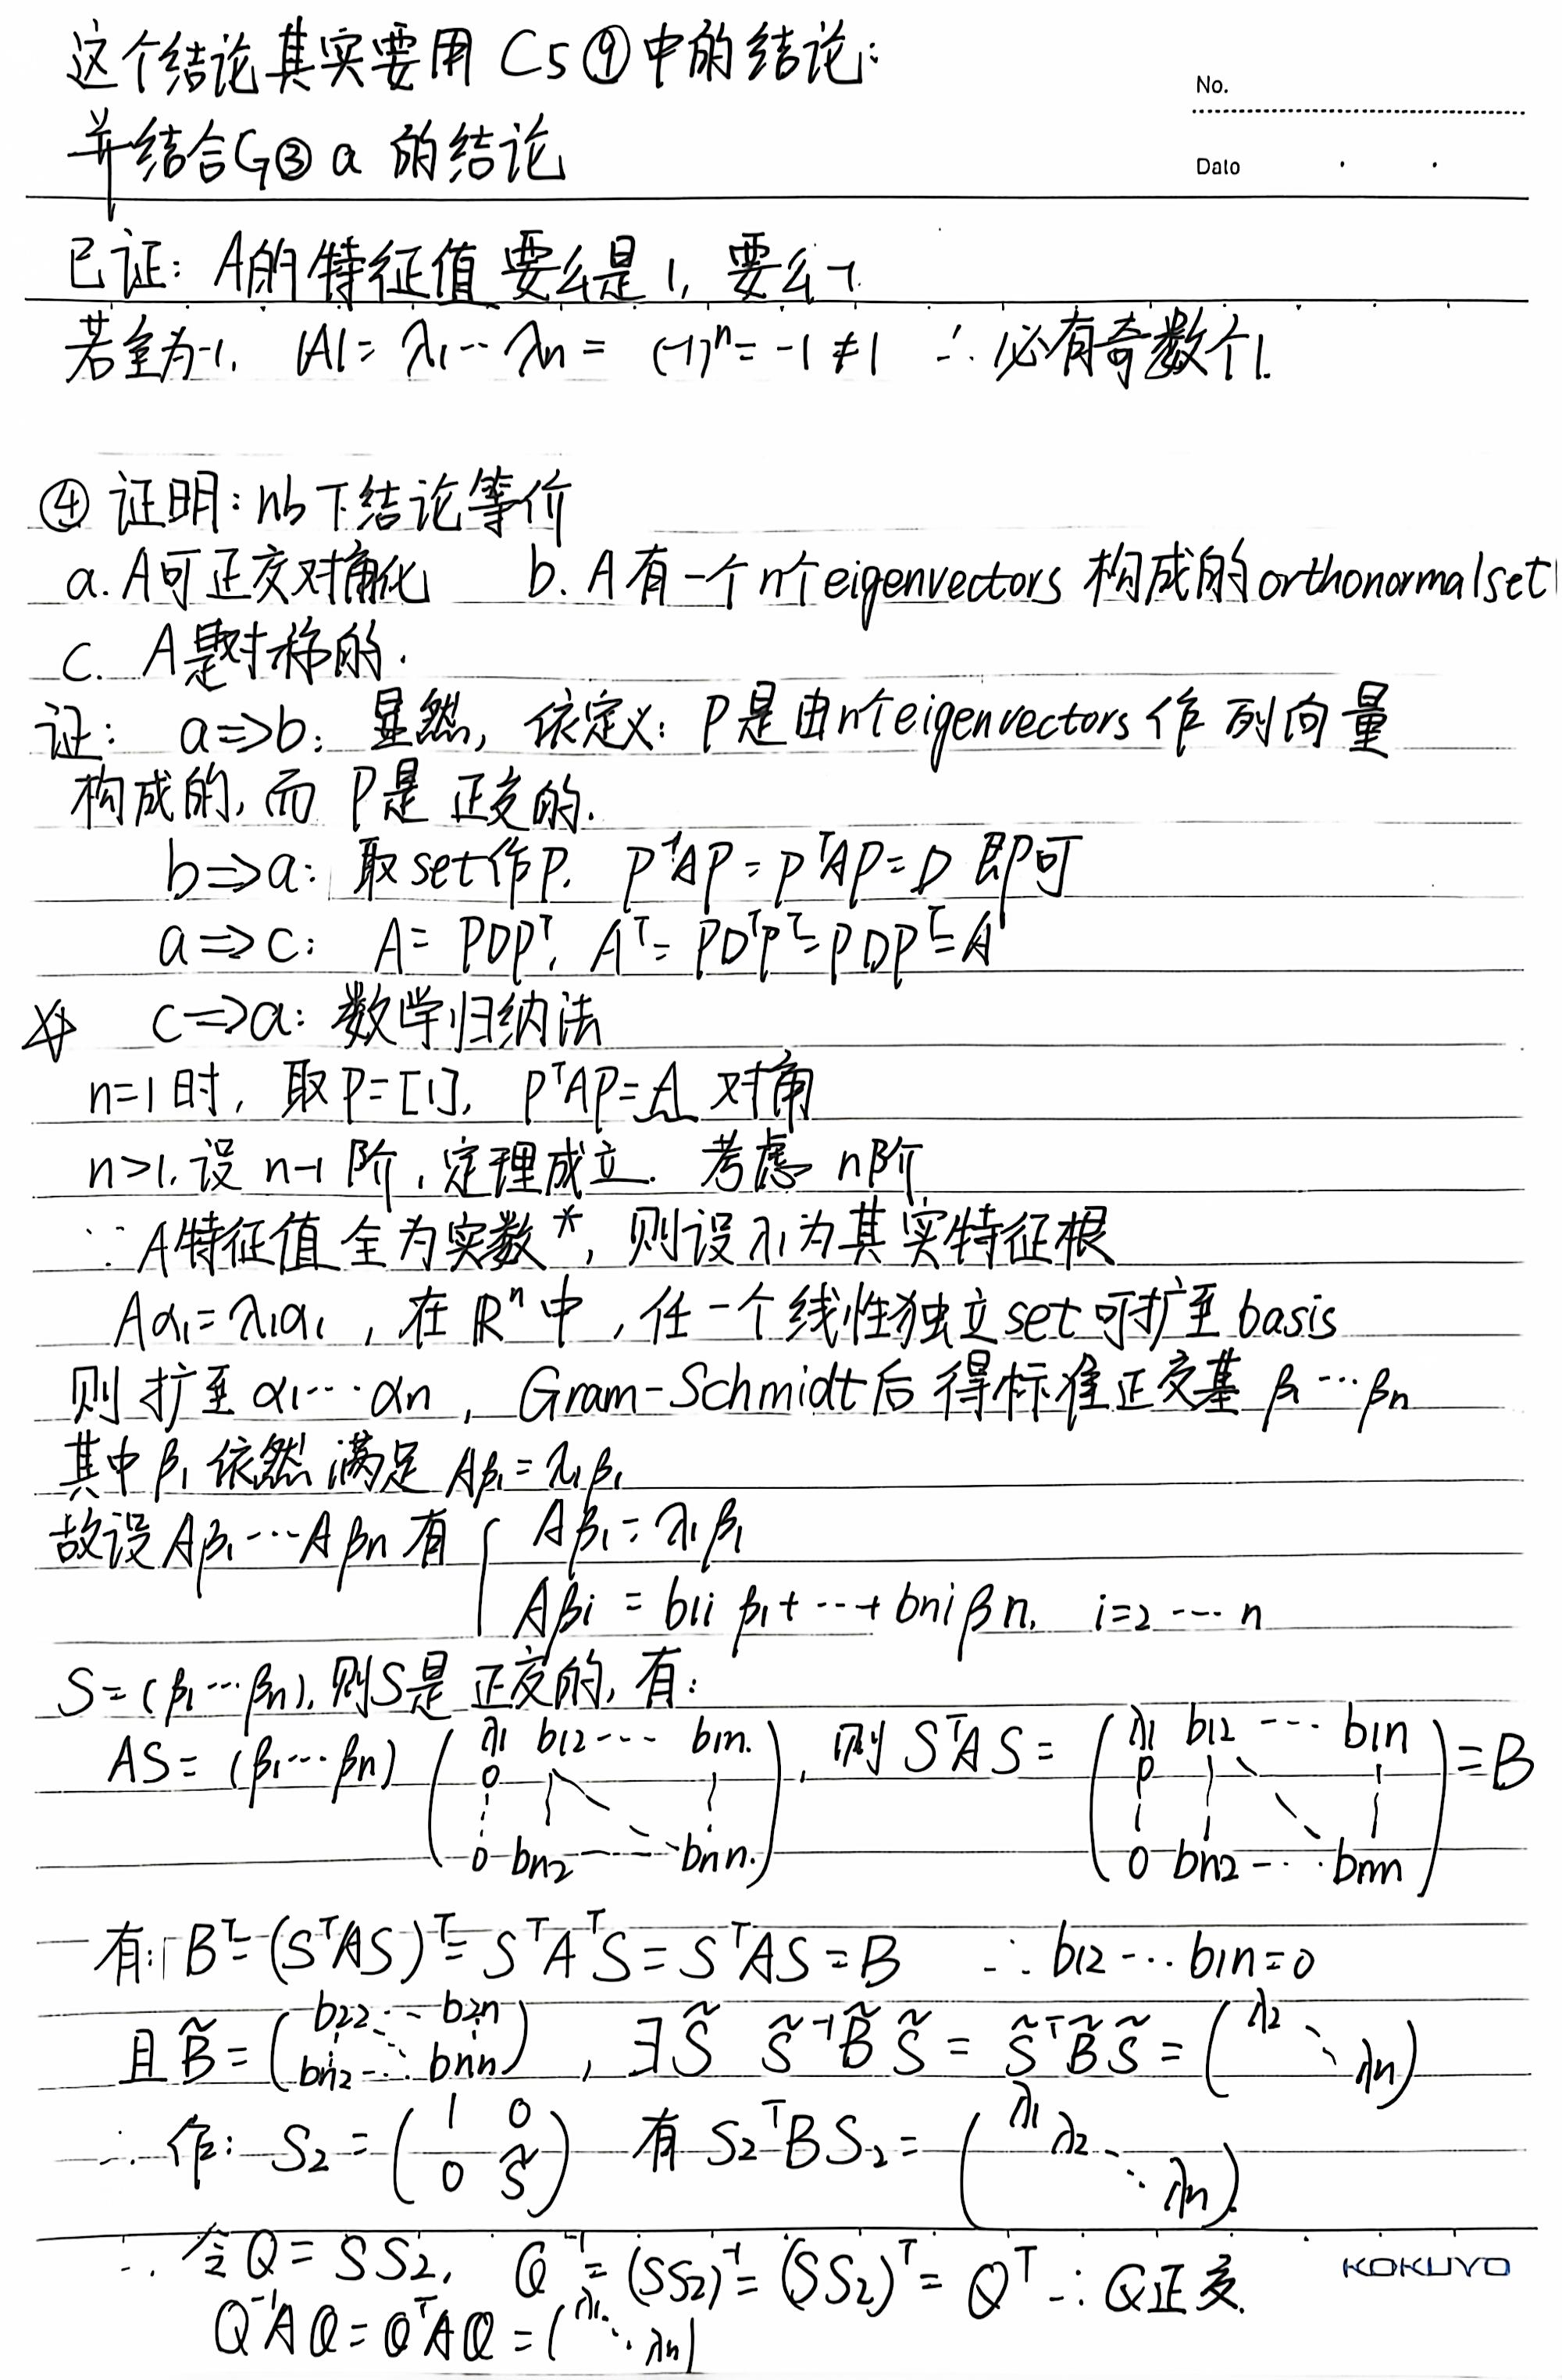 这个结论其实要用 C5⑨中的结论:
并结合G③a 的结论
No.
Date
已证: A的特征值要么是1, 要么-1.
若全为-1, |A|= λ1…λn = (-1)ⁿ= -1 ≠1 ∴必有奇数个1.
④ 证明: 以下结论等价
a. A可正交对角化 b. A有一个n个eigenvectors 构成的orthonormal set
c. A是对称的.
证: a⇒b: 显然, 依定义: P是由n个eigenvectors作列向量
构成的, 而 P是 正交的.
b⇒a: 取set作P. P⁻¹AP = PᵀAP = D 即可
a⇒c: A= PDPᵀ, Aᵀ= PDᵀPᵀ=PDPᵀ=A
c⇒a: 数学归纳法
n=1时, 取P=[1], PᵀAP=A 对角
n>1, 设 n-1 阶, 定理成立. 考虑 n阶
∵A特征值全为实数*, 则设λ1为其实特征根
Aα1=λ1α1, 在 ℝⁿ中, 任一个线性独立set可扩至basis
则扩至α1…αn, Gram-Schmidt后得标准正交基 β1…βn
其中β1依然满足 Aβ1=λ1β1
故设Aβ1…Aβn有 { Aβ1=λ1β1
Aβi = b1i β1+…+bni βn, i=2…n
S=(β1…βn), 则S是 正交的, 有:
AS= (β1…βn) (λ1 b12… b1n. 0 ⋮ 0 bn2…bnn.), 则 SᵀAS= (λ1 b12 … b1n 0 ⋮ 0 bn2…bnn) =B
有: Bᵀ=(SᵀAS)ᵀ= SᵀAᵀS=SᵀAS=B ∴b12…b1n=0
且 B̃ = (b22…b2n bn2…bnn), ∃S̃ S̃⁻¹B̃S̃ = S̃ᵀB̃S̃ = (λ2 ⋱ λn)
∴作: S2 = (1 0 0 S̃) 有 S2ᵀBS2= (λ1 λ2 ⋱ λn).
∴ 令Q= SS2, Q⁻¹=(SS2)⁻¹=(SS2)ᵀ= Qᵀ ∴Q正交.
KOKUYO
Q⁻¹AQ=QᵀAQ=(λ1 ⋱ λn)